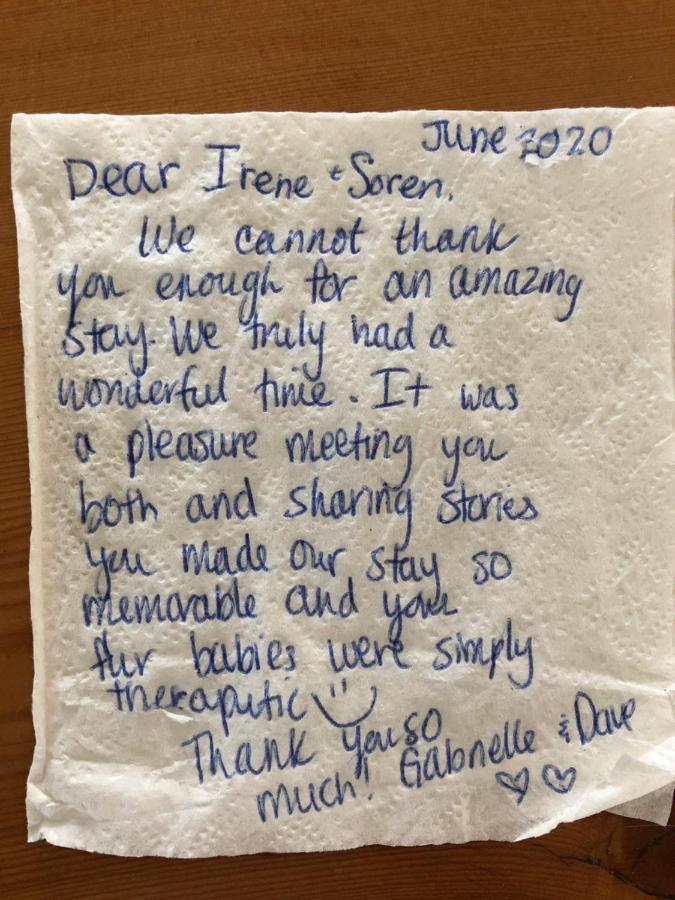 June 2020
Dear Irene + Soren,
We cannot thank
you enough for an amazing
stay. We truly had a
wonderful time. It was
a pleasure meeting you
both and sharing stories
you made our stay so
memorable and your
fur babies were simply
theraputic
Thank you so
much! Gabrielle & Dave